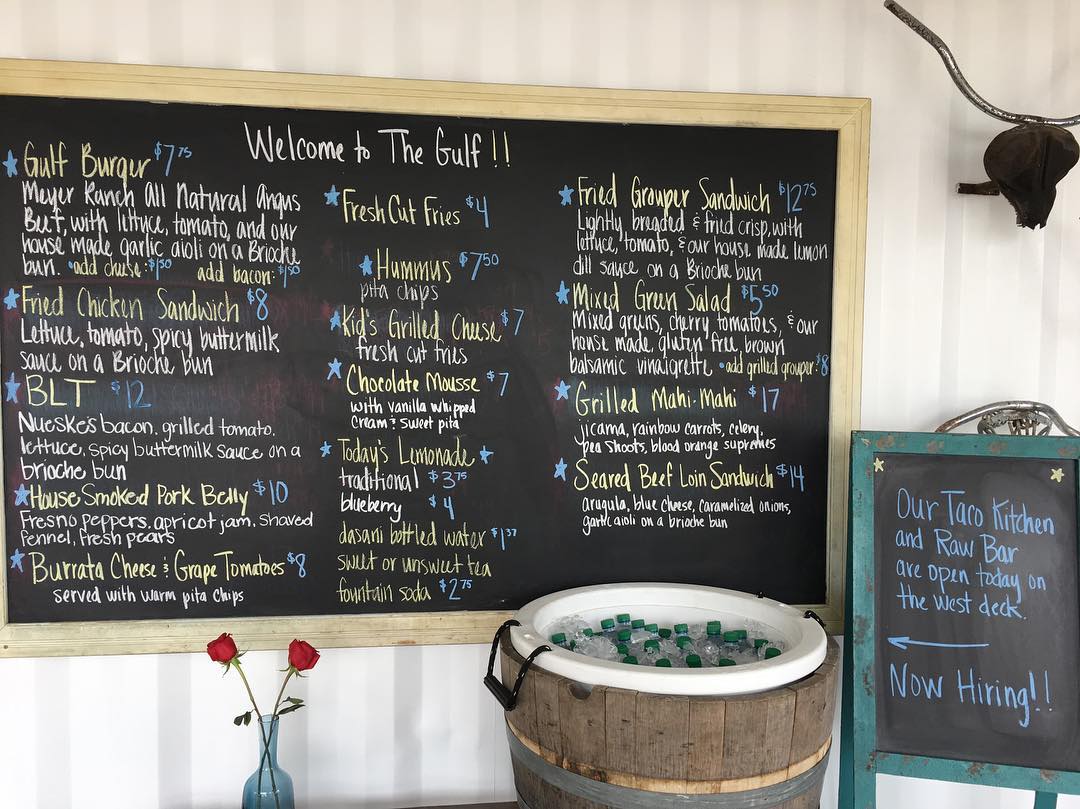 Welcome to The Gulf !!
Gulf Burger $7.75
Meyer Ranch All Natural Angus
Beef, with lettuce, tomato, and our
house made garlic aioli on a Brioche
bun. •add cheese: $1.50 add bacon: $1.50
Fried Chicken Sandwich $8
Lettuce, tomato, spicy buttermilk
sauce on a Brioche bun
BLT $12
Nueske's bacon, grilled tomato,
lettuce, spicy buttermilk sauce on a
brioche bun
House Smoked Pork Belly $10
Fresno peppers, apricot jam, shaved
fennel, fresh pears
Burrata Cheese & Grape Tomatoes $8
served with warm pita chips
Fresh Cut Fries $4
Hummus $7.50
pita chips
Kid's Grilled Cheese $7
fresh cut fries
Chocolate Mousse $7
with vanilla whipped
cream & sweet pita
Today's Lemonade
traditional $3.75
blueberry $4
dasani bottled water $1.37
sweet or unsweet tea
fountain soda $2.75
Fried Grouper Sandwich $12.75
Lightly breaded & fried crisp, with
lettuce, tomato, & our house made lemon
dill sauce on a Brioche bun
Mixed Green Salad $5.50
Mixed greens, cherry tomatoes, & our
house made, gluten free, brown
balsamic vinaigrette •add grilled grouper: $8
Grilled Mahi-Mahi $17
jicama, rainbow carrots, celery,
pea shoots, blood orange supremes
Seared Beef Loin Sandwich $14
arugula, blue cheese, caramelized onions,
garlic aioli on a brioche bun
Our Taco Kitchen
and Raw Bar
are open today on
the west deck.
Now Hiring!!